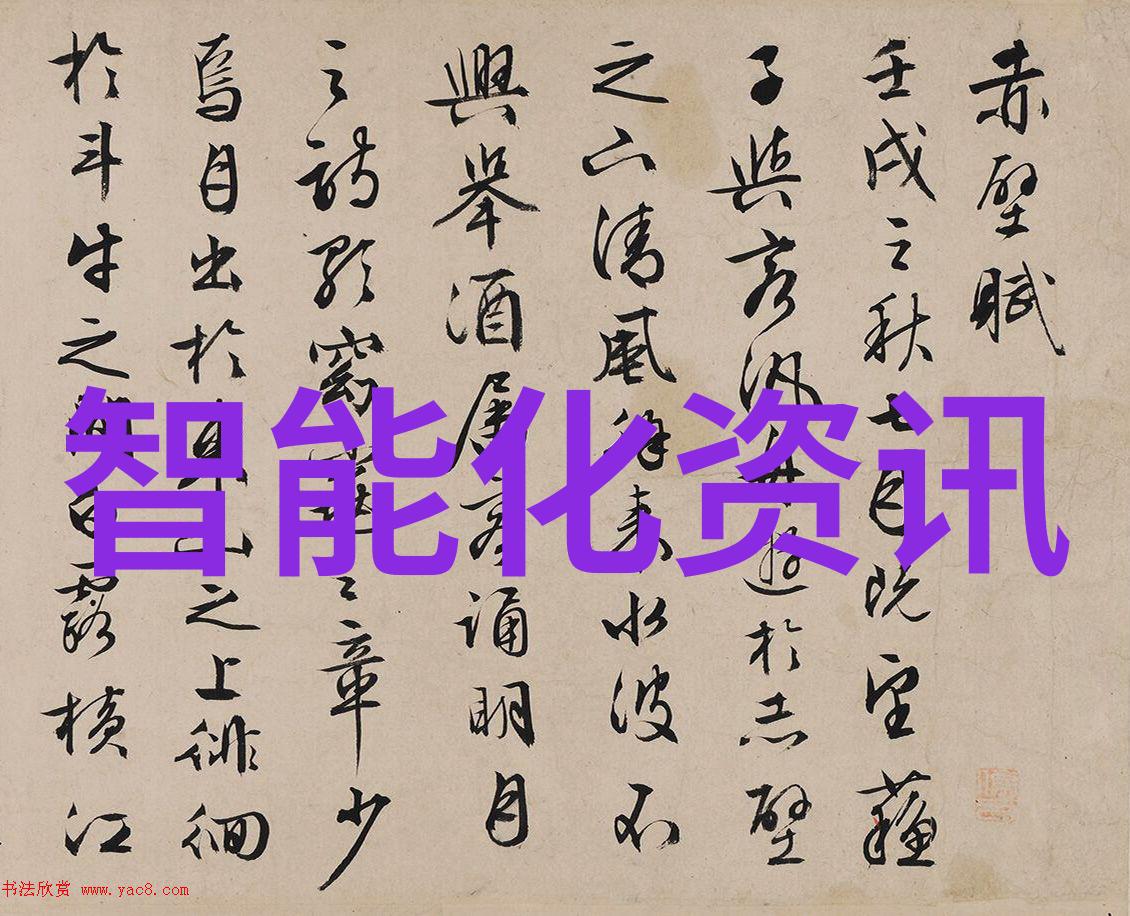 赤壁賦
壬戌之秋七月既望蘇
子與客汎舟遊於赤壁
之下清風徐來水波不
興舉酒屬客誦明月
之詩歌窈窕之章少
焉月出於東山之上徘徊
於斗牛之間白露橫江
智能化资讯
书法欣赏 www.yac8.com